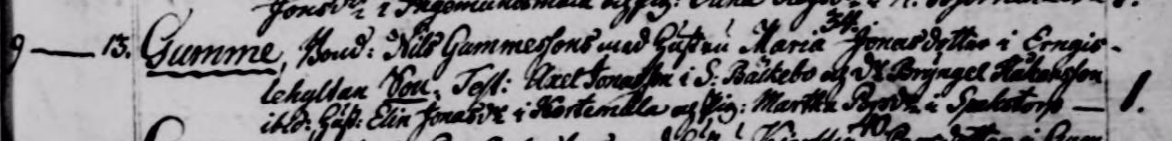 Jonsdr i
34.
9 — 13. Gumme, Bond: Nils Gummessons med Hustru Maria Jonasdotter i Erngis-
lehyltan Son. Test: Axel Jonasson i S: Bäckebo och Dr Bryngel Håkansson
ibid: Hust: Elin Jonasdr i Kortemåla och Pig: Martha Persdr i Spakatorp — 1.
40.